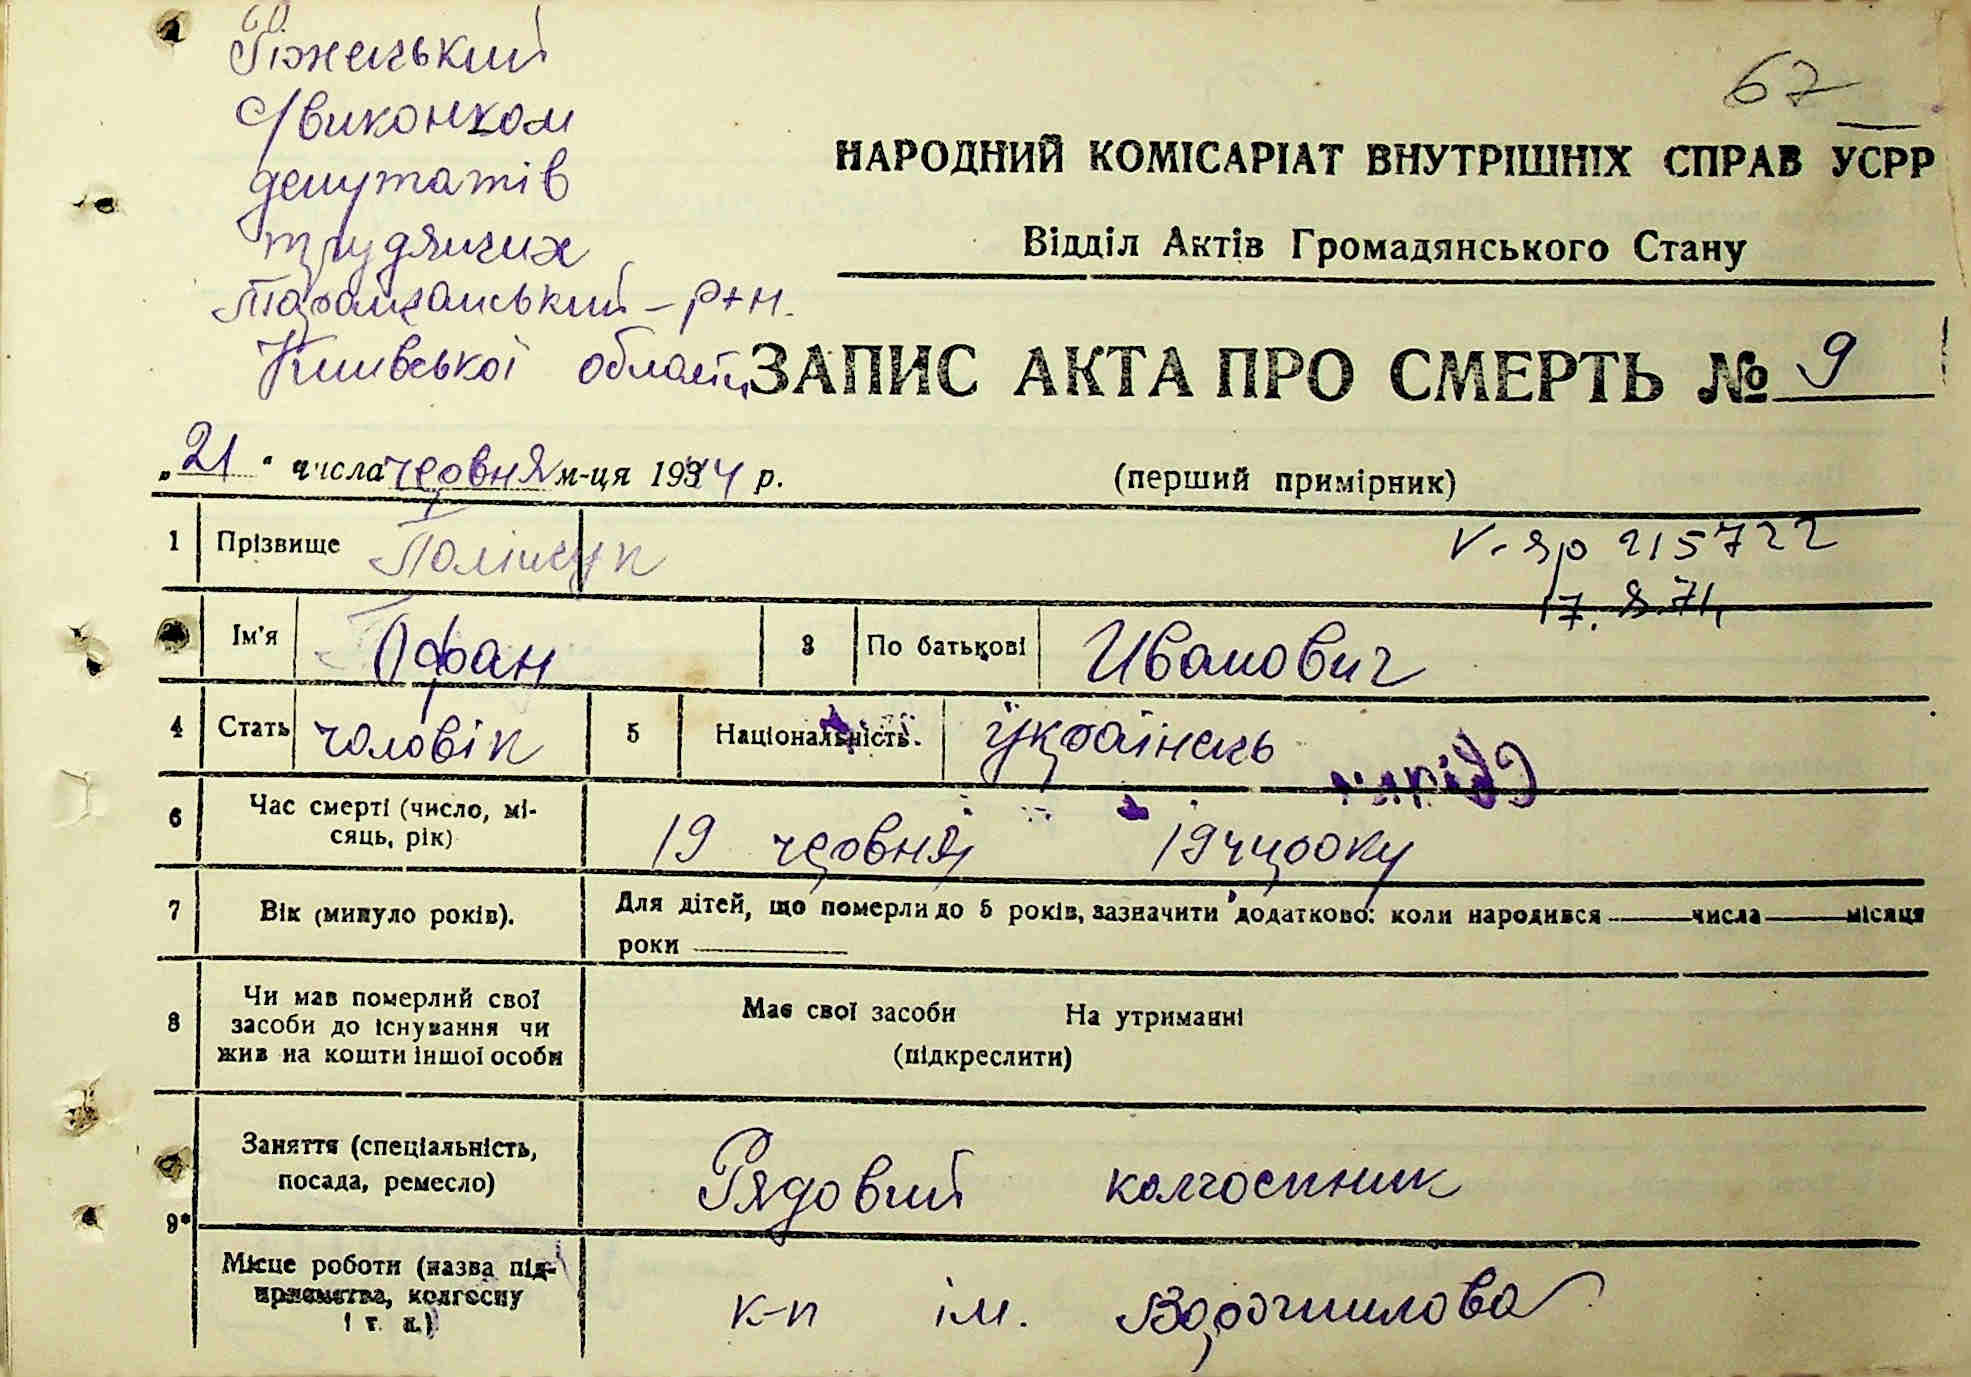 67
Ріжський
С/виконком
депутатів
трудящих
Таращанський - р+н.
Київської області
НАРОДНИЙ КОМІСАРІАТ ВНУТРІШНІХ СПРАВ УСРР
Відділ Актів Громадянського Стану
ЗАПИС АКТА ПРО СМЕРТЬ № 9
„21“ числа червня м-ця 1944 р.
(перший примірник)
1 Прізвище Поліщук
V-яр 215722
17. 8.71.
Ім'я Офан 3 По батькові Иванович
4 Стать чоловік 5 Національність. українець
6 Час смерті (число, мі-
сяць, рік) 19 червня 1944 року
7 Вік (минуло років). Для дітей, що померли до 5 років, зазначити додатково: коли народився числа місяця
роки
8 Чи мав померлий свої
засоби до існування чи
жив на кошти іншої особи
Має свої засоби На утриманні
(підкреслити)
9* Заняття (спеціальність,
посада, ремесло) Рядовий колгоспник
Місце роботи (назва під-
приємства, колгоспу
і т. д.) к-п ім. Ворошилова